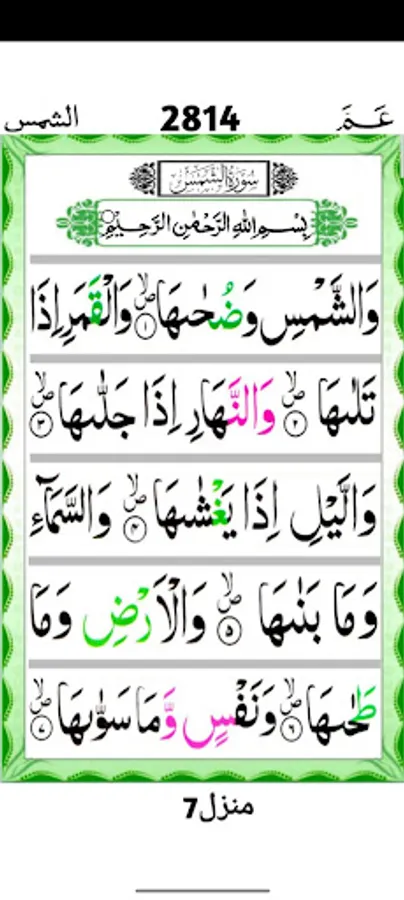 عَمَّ 2814 الشمس
سُوْرَةُ الشَّمْسِ
بِسْمِ اللّٰهِ الرَّحْمٰنِ الرَّحِيْمِ
وَالشَّمْسِ وَضُحٰىهَا ۪ۙ‏ ﴿۱﴾ وَالْقَمَرِ اِذَا
تَلٰىهَا ۪ۙ‏ ﴿۲﴾ وَالنَّهَارِ اِذَا جَلّٰىهَا ۪ۙ‏ ﴿۳﴾
وَالَّيْلِ اِذَا يَغْشٰىهَا ۪ۙ‏ ﴿۴﴾ وَالسَّمَآءِ
وَمَا بَنٰىهَا ۪ۙ‏ ﴿۵﴾ وَالْاَرْضِ وَمَا
طَحٰىهَا ۪ۙ‏ ﴿۶﴾ وَنَفْسٍ وَّمَا سَوّٰىهَا ۪ۙ‏ ﴿۷﴾
منزل7